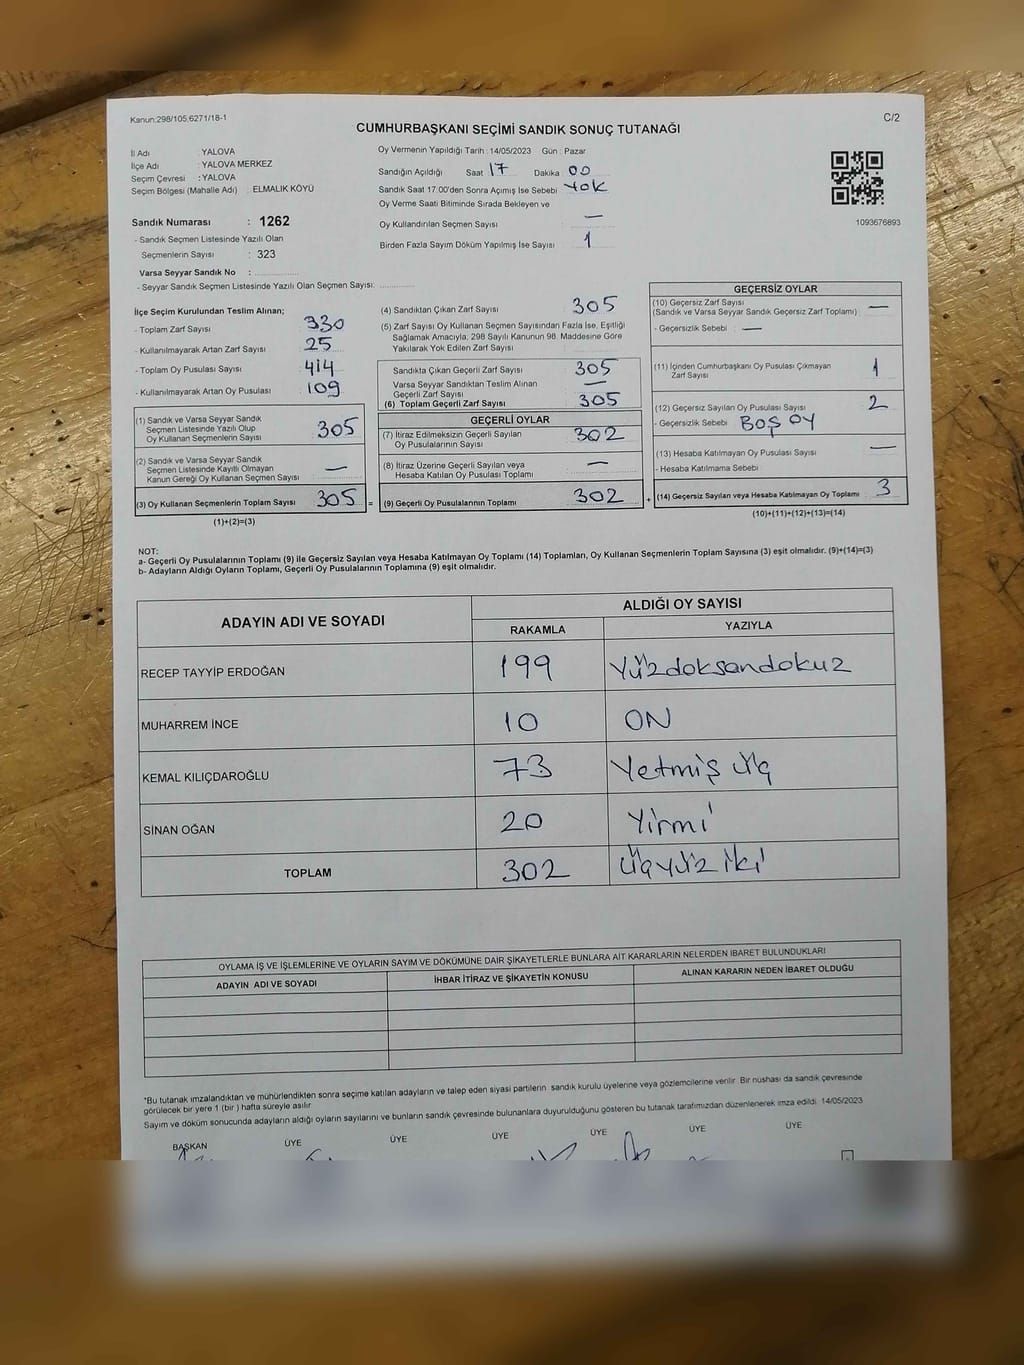 Kanun:298/105,6271/18-1
C/2
CUMHURBAŞKANI SEÇİMİ SANDIK SONUÇ TUTANAĞI
İl Adı YALOVA
İlçe Adı : YALOVA MERKEZ
Seçim Çevresi : YALOVA
Seçim Bölgesi (Mahalle Adı) : ELMALIK KÖYÜ
Sandık Numarası : 1262
- Sandık Seçmen Listesinde Yazılı Olan
Seçmenlerin Sayısı : 323
Varsa Seyyar Sandık No :
- Seyyar Sandık Seçmen Listesinde Yazılı Olan Seçmen Sayısı:
Oy Vermenin Yapıldığı Tarih : 14/05/2023 Gün : Pazar
Sandığın Açıldığı Saat 17 Dakika 00
Sandık Saat 17.00'den Sonra Açımış İse Sebebi YOK
Oy Verme Saati Bitiminde Sırada Bekleyen ve
Oy Kullandırılan Seçmen Sayısı : —
Birden Fazla Sayım Döküm Yapılmış İse Sayısı : 1
1093676893
İlçe Seçim Kurulundan Teslim Alınan;
- Toplam Zarf Sayısı : 330
- Kullanılmayarak Artan Zarf Sayısı : 25
- Toplam Oy Pusulası Sayısı : 414
- Kullanılmayarak Artan Oy Pusulası : 109
(1) Sandık ve Varsa Seyyar Sandık
Seçmen Listesinde Yazılı Olup
Oy Kullanan Seçmenlerin Sayısı : 305
(2) Sandık ve Varsa Seyyar Sandık
Seçmen Listesinde Kayıtlı Olmayan
Kanun Gereği Oy Kullanan Seçmen Sayısı : —
(3) Oy Kullanan Seçmenlerin Toplam Sayısı : 305 =
(1)+(2)=(3)
(4) Sandıktan Çıkan Zarf Sayısı : 305
(5) Zarf Sayısı Oy Kullanan Seçmen Sayısından Fazla İse, Eşitliği
Sağlamak Amacıyla; 298 Sayılı Kanunun 98. Maddesine Göre
Yakılarak Yok Edilen Zarf Sayısı :
Sandıkta Çıkan Geçerli Zarf Sayısı : 305
Varsa Seyyar Sandıktan Teslim Alınan
Geçerli Zarf Sayısı : —
(6) Toplam Geçerli Zarf Sayısı : 305
GEÇERLİ OYLAR
(7) İtiraz Edilmeksizin Geçerli Sayılan
Oy Pusulalarının Sayısı : 302
(8) İtiraz Üzerine Geçerli Sayılan veya
Hesaba Katılan Oy Pusulası Toplamı : —
(9) Geçerli Oy Pusulalarının Toplamı : 302 +
GEÇERSİZ OYLAR
(10) Geçersiz Zarf Sayısı
(Sandık ve Varsa Seyyar Sandık Geçersiz Zarf Toplamı) : —
- Geçersizlik Sebebi : —
(11) İçinden Cumhurbaşkanı Oy Pusulası Çıkmayan
Zarf Sayısı : 1
(12) Geçersiz Sayılan Oy Pusulası Sayısı : 2
- Geçersizlik Sebebi : BOŞ OY
(13) Hesaba Katılmayan Oy Pusulası Sayısı : —
- Hesaba Katılmama Sebebi :
(14) Geçersiz Sayılan veya Hesaba Katılmayan Oy Toplamı : 3
(10)+(11)+(12)+(13)=(14)
NOT:
a- Geçerli Oy Pusulalarının Toplamı (9) ile Geçersiz Sayılan veya Hesaba Katılmayan Oy Toplamı (14) Toplamları, Oy Kullanan Seçmenlerin Toplam Sayısına (3) eşit olmalıdır. (9)+(14)=(3)
b- Adayların Aldığı Oyların Toplamı, Geçerli Oy Pusulalarının Toplamına (9) eşit olmalıdır.
ADAYIN ADI VE SOYADI ALDIĞI OY SAYISI
RAKAMLA YAZIYLA
RECEP TAYYİP ERDOĞAN 199 Yüzdoksandokuz
MUHARREM İNCE 10 ON
KEMAL KILIÇDAROĞLU 73 Yetmiş üç
SİNAN OĞAN 20 Yirmi
TOPLAM 302 üçyüz iki
OYLAMA İŞ VE İŞLEMLERİNE VE OYLARIN SAYIM VE DÖKÜMÜNE DAİR ŞİKAYETLERLE BUNLARA AİT KARARLARIN NELERDEN İBARET BULUNDUKLARI
ADAYIN ADI VE SOYADI İHBAR İTİRAZ VE ŞİKAYETİN KONUSU ALINAN KARARIN NEDEN İBARET OLDUĞU
*Bu tutanak imzalandıktan ve mühürlendikten sonra seçime katılan adayların ve talep eden siyasi partilerin sandık kurulu üyelerine veya gözlemcilerine verilir. Bir nüshası da sandık çevresinde
görülecek bir yere 1 (bir) hafta süreyle asılır.
Sayım ve döküm sonucunda adayların aldığı oyların sayılarını ve bunların sandık çevresinde bulunanlara duyurulduğunu gösteren bu tutanak tarafımızdan düzenlenerek imza edildi. 14/05/2023
BAŞKAN ÜYE ÜYE ÜYE ÜYE ÜYE ÜYE